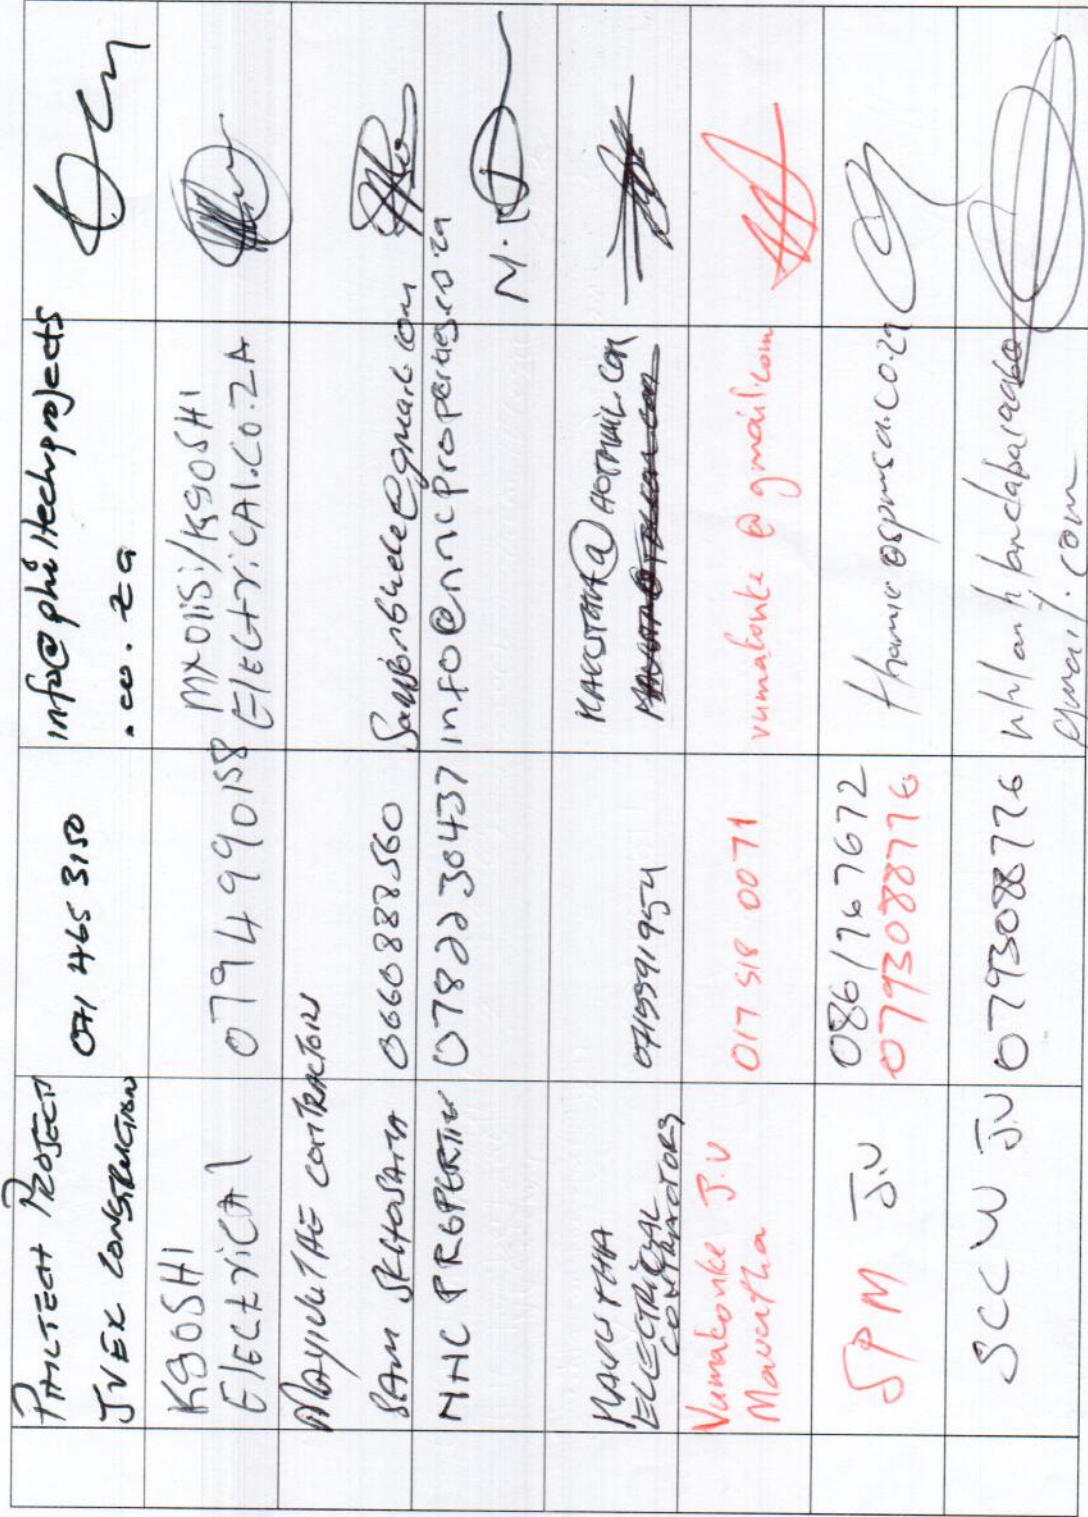 PHILTECH PROJECT
JVEK CONSTRUCTION
071 465 3150
info@philtechprojects
.co.za
KgOSHI
ElECtriCAl
0794990158
MXOliSi/KgOSHI
ElECtriCAl.CO.ZA
CONTRACTORS
SAM
0660888560
@gmail.com
NHC PROPERTIES
0782230437
info@nnc properties.co.za
M.
MAVUTHA
ELECTRICAL
CONTRACTORS
0715991954
MAVUTHA@HOTMAIL.COM
Vumakonke J.V
Mavutha
017 518 0071
vumakonke@gmail.com
SPM J.V
0861767672
0793088776
SCCW J.V
0793088776
gmail.com